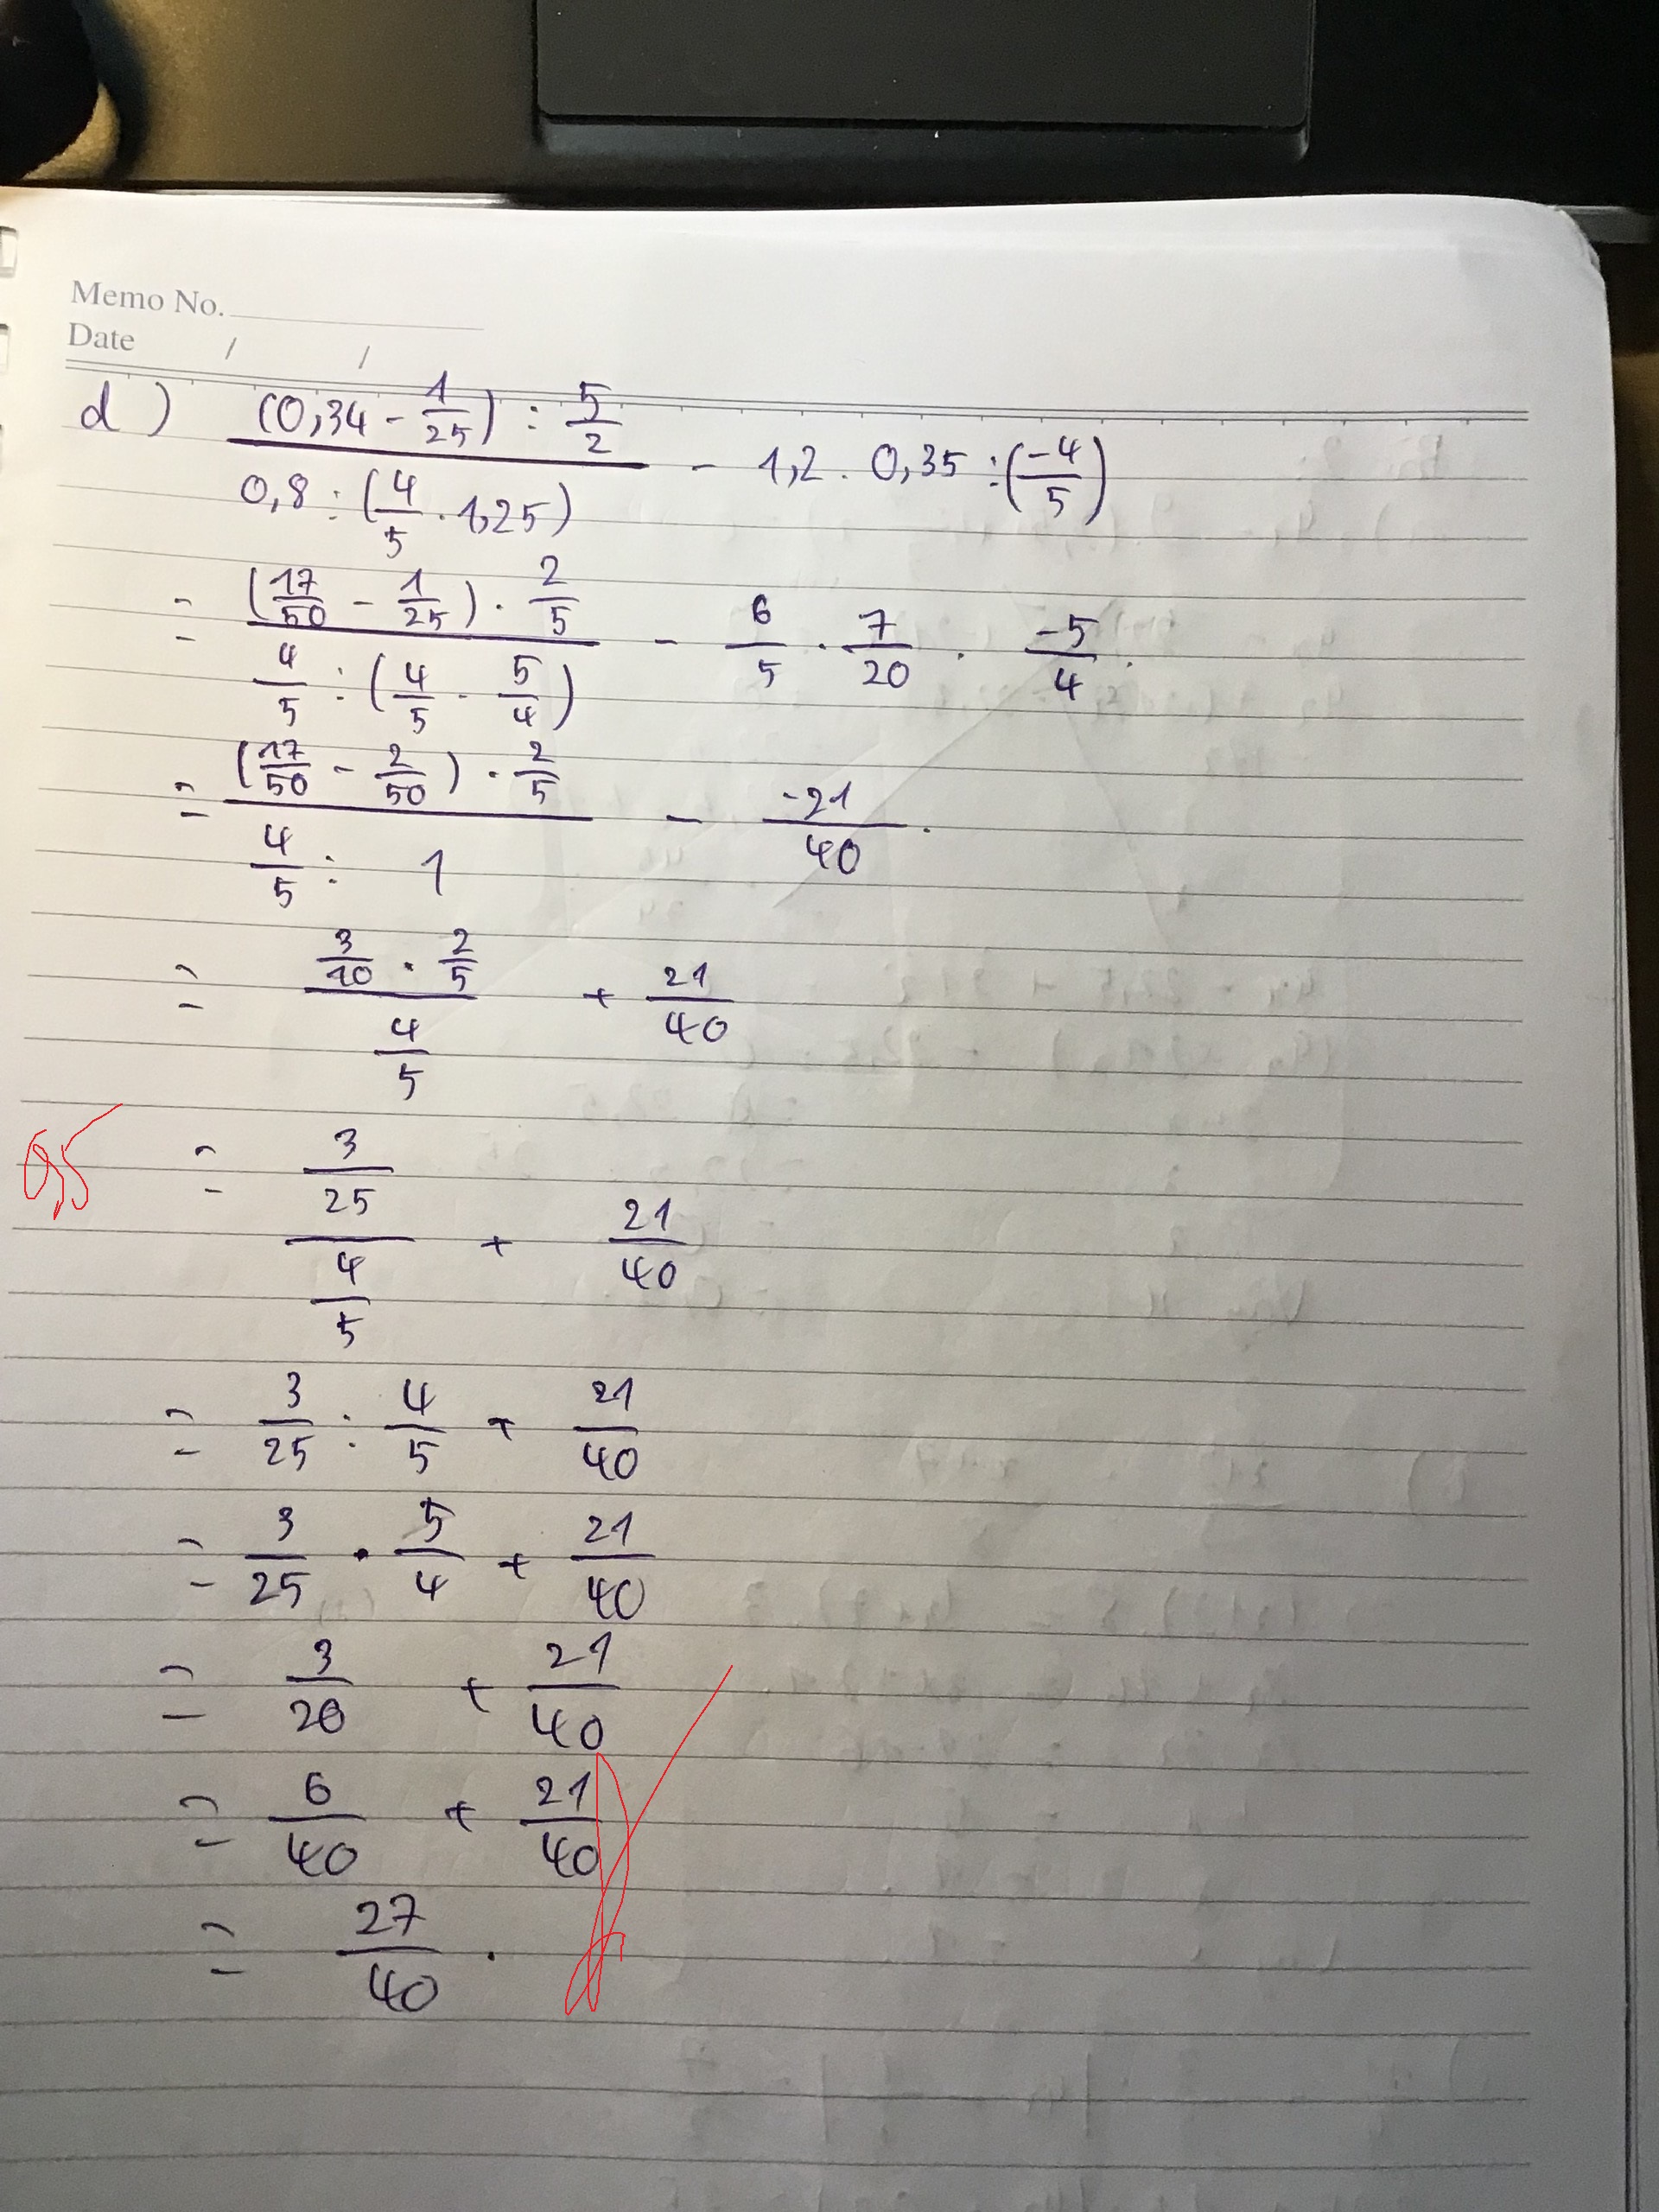 Memo No.
Date / /
d) ((0,34 - 1/25) : 5/2) / (0,8 : (4/5 . 1,25)) - 1,2 . 0,35 : (-4/5)
= ((17/50 - 1/25) . 2/5) / (4/5 : (4/5 . 5/4)) - 6/5 . 7/20 . -5/4.
= ((17/50 - 2/50) . 2/5) / (4/5 : 1) - -21/40.
= (3/10 . 2/5) / (4/5) + 21/40
0,5 = (3/25) / (4/5) + 21/40
= 3/25 : 4/5 + 21/40
= 3/25 . 5/4 + 21/40
= 3/20 + 21/40
= 6/40 + 21/40
= 27/40.